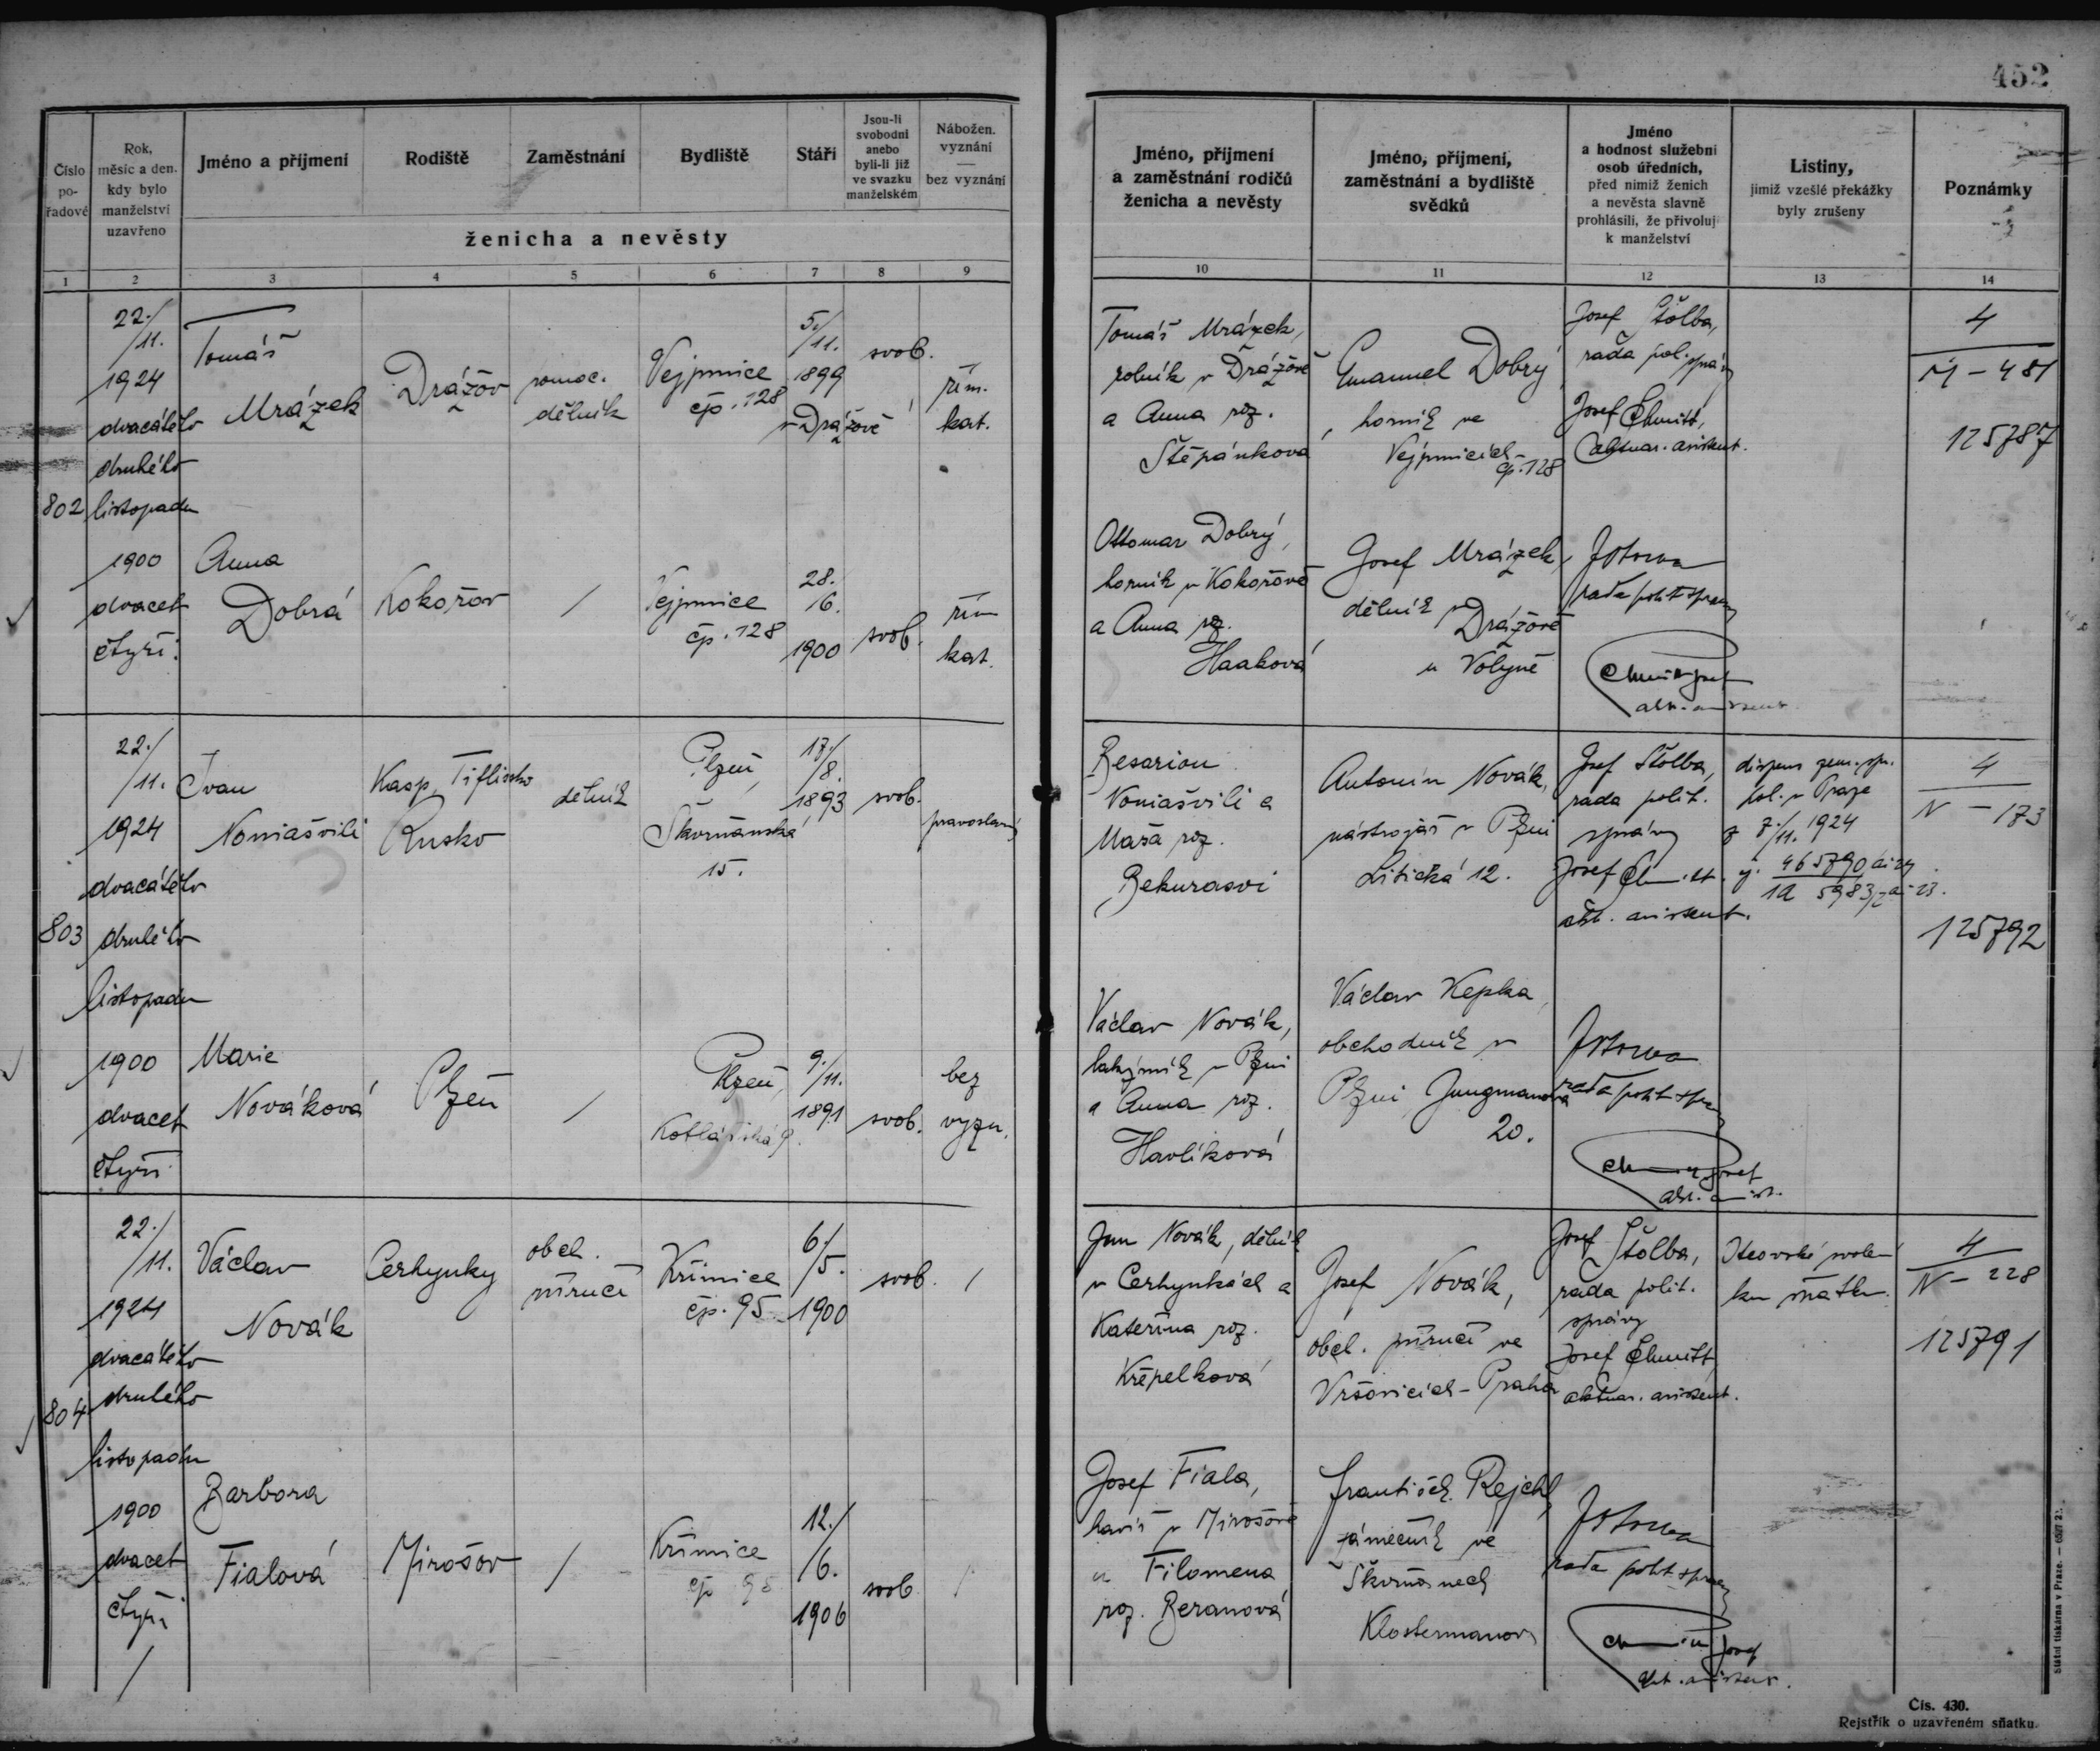 452
Číslo
po-
řadové
Rok,
měsíc a den.
kdy bylo
manželství
uzavřeno
Jméno a příjmení
Rodiště
Zaměstnání
Bydliště
Stáří
Jsou-li
svobodni
anebo
byli-li již
ve svazku
manželském
Nábožen.
vyznání
bez vyznání
ženicha a nevěsty
Jméno, příjmení
a zaměstnání rodičů
ženicha a nevěsty
Jméno, příjmení,
zaměstnání a bydliště
svědků
Jméno
a hodnost služební
osob úředních,
před nimiž ženich
a nevěsta slavně
prohlásili, že přivoluj
k manželství
Listiny,
jimiž vzešlé překážky
byly zrušeny
Poznámky
1 2 3 4 5 6 7 8 9 10 11 12 13 14
802
22./
/11.
1924
dvacátého
druhého
listopadu
1900
dvacet
čtyři.
Tomáš
Mrázek
Drážov
pomoc.
dělník
Vejprnice
čp. 128
5./
/11.
1899
v Drážově
svob.
řím.
kat.
Tomáš Mrázek,
rolník v Drážově
a Anna roz.
Štěpánková
Emanuel Dobrý,
horník ve
Vejprnicích
čp. 128
Josef Štolba,
rada pol. správy
Josef Chmitt,
aktuar. asistent.
4
M - 481
125787
Anna
Dobrá
Kokořov
/
Vejprnice
čp. 128
28.
/6.
1900
svob.
řím
kat.
Ottomar Dobrý,
horník v Kokořově
a Anna roz.
Haaková
Josef Mrázek,
dělník v
Drážově
u Volyně
rada polit správy
803
22./
/11.
1924
dvacátého
druhého
listopadu
1900
dvacet
čtyři
Ivan
Noniašvili
Kasp, Tiflisko
Rusko
dělník
Plzeň,
Škvrňanská
15.
17./
/8.
1893
svob.
pravoslavný
Besarion
Noniašvili a
Maša roz.
Bekurasvi
Antonín Novák,
nástrojař v Plzni
Litická 12.
Josef Štolba,
rada polit.
správy
Josef Chmitt.
akt. asistent.
dispens zem. spr.
pol. v Praze
z 7./11. 1924
č. 465790 ai 24
1a 5983/ ai 23.
4
N - 173
125792
Marie
Nováková
Plzeň
/
Plzeň,
Kotlářská 9.
9./
/11.
1891
svob.
bez
vyzn.
Václav Novák,
v Plzni
a Anna roz.
Havlíková
Václav Kepka,
obchodník v
Plzni Jungmanova
20.
rada polit správy
804
22./
/11.
1924
dvacátého
druhého
listopadu
1900
dvacet
čtyři
/
Václav
Novák
Cerhynky
obch.
příručí
Křimice
čp. 95
6./
/5.
1900
svob.
/
Jan Novák, dělník
v Cerhynkách a
Kateřina roz.
Křepelková
Josef Novák,
obch. příručí ve
Vršovicích - Praha
Josef Štolba,
rada polit.
správy
Josef Chmitt
aktuar. asistent.
Otcovské svolení
ku sňatku.
4
N - 228
125791
Barbora
Fialová
Mirošov
/
Křimice
čp 98
12./
/6.
1906
svob
/
Josef Fiala,
havíř v Mirošově
a Filomena
roz. Beranová
František Rejchl,
zámečník ve
Škvrňanech
Klostermanova
rada polit správy
Státní tiskárna v Praze.
Čís. 430.
Rejstřík o uzavřeném sňatku.